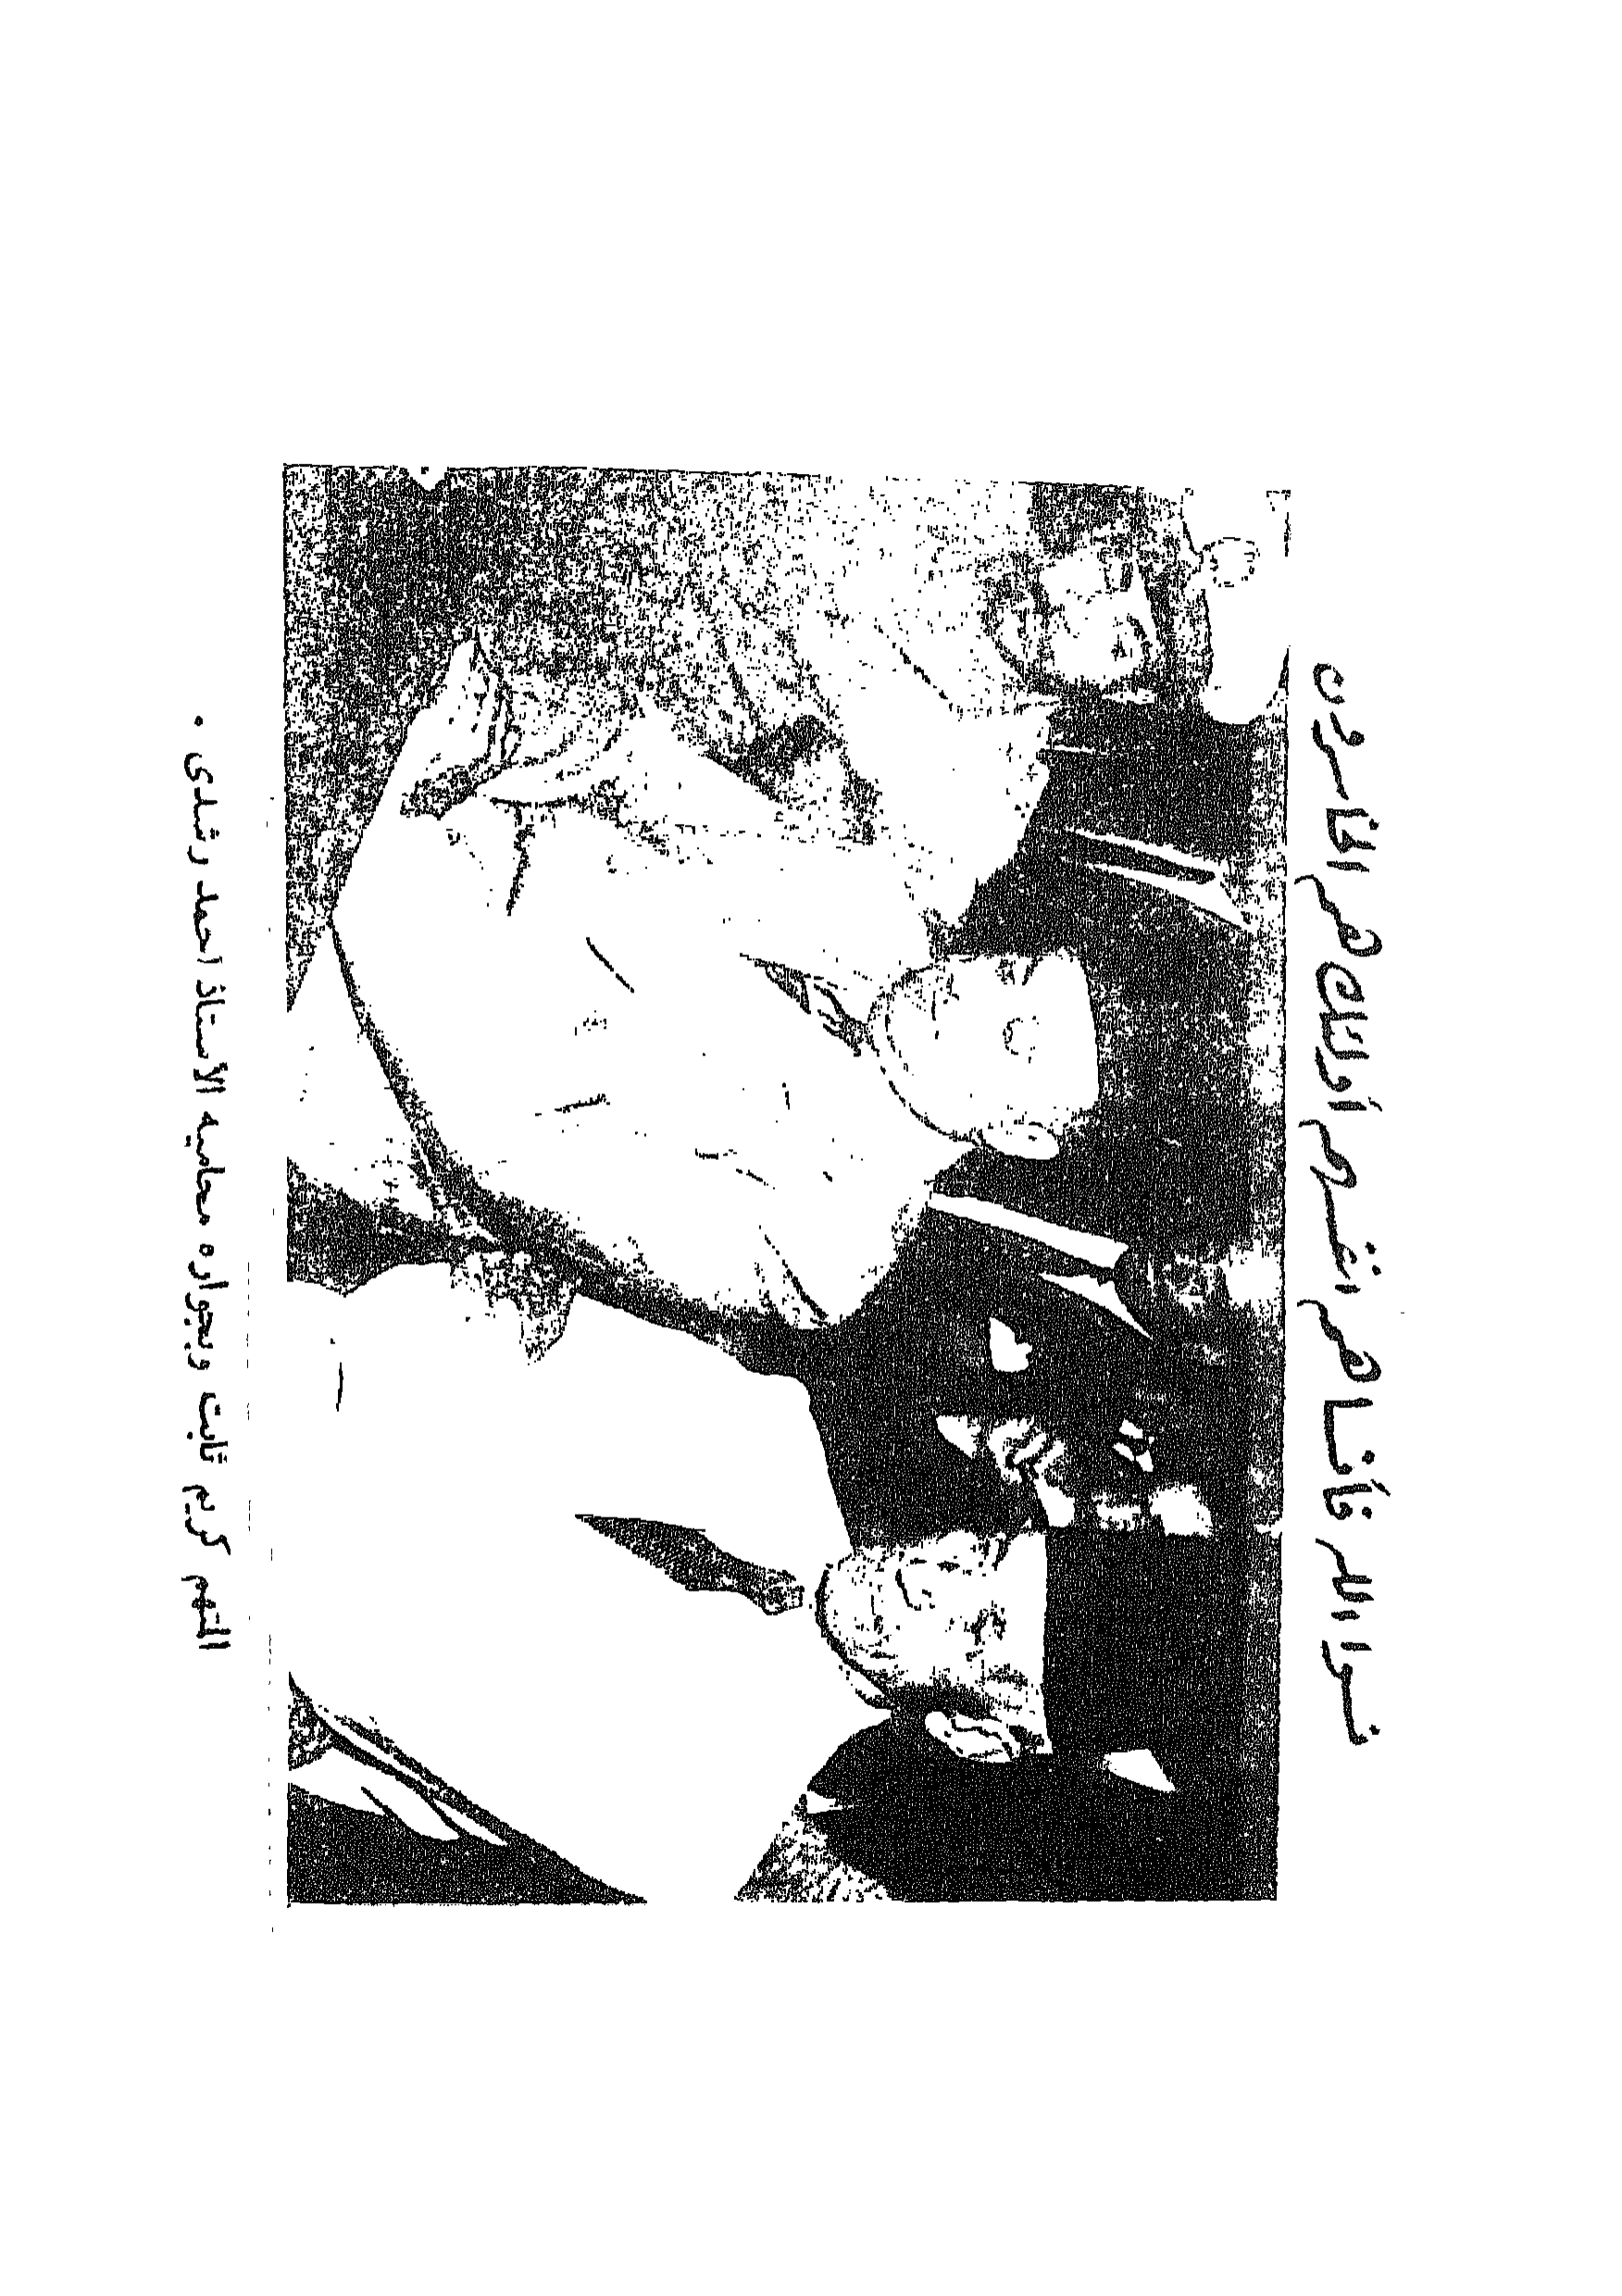 نسوا الله فأنساهم أنفسهم أولئك هم الخاسرون
المتهم كريم ثابت وبجواره محاميه الأستاذ احمد رشدى .